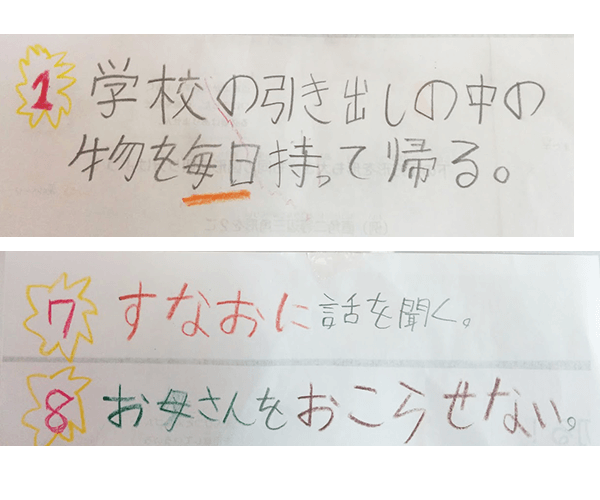 1 学校の引き出しの中の
物を毎日持って帰る。
7 すなおに話を聞く。
8 お母さんをおこらせない。